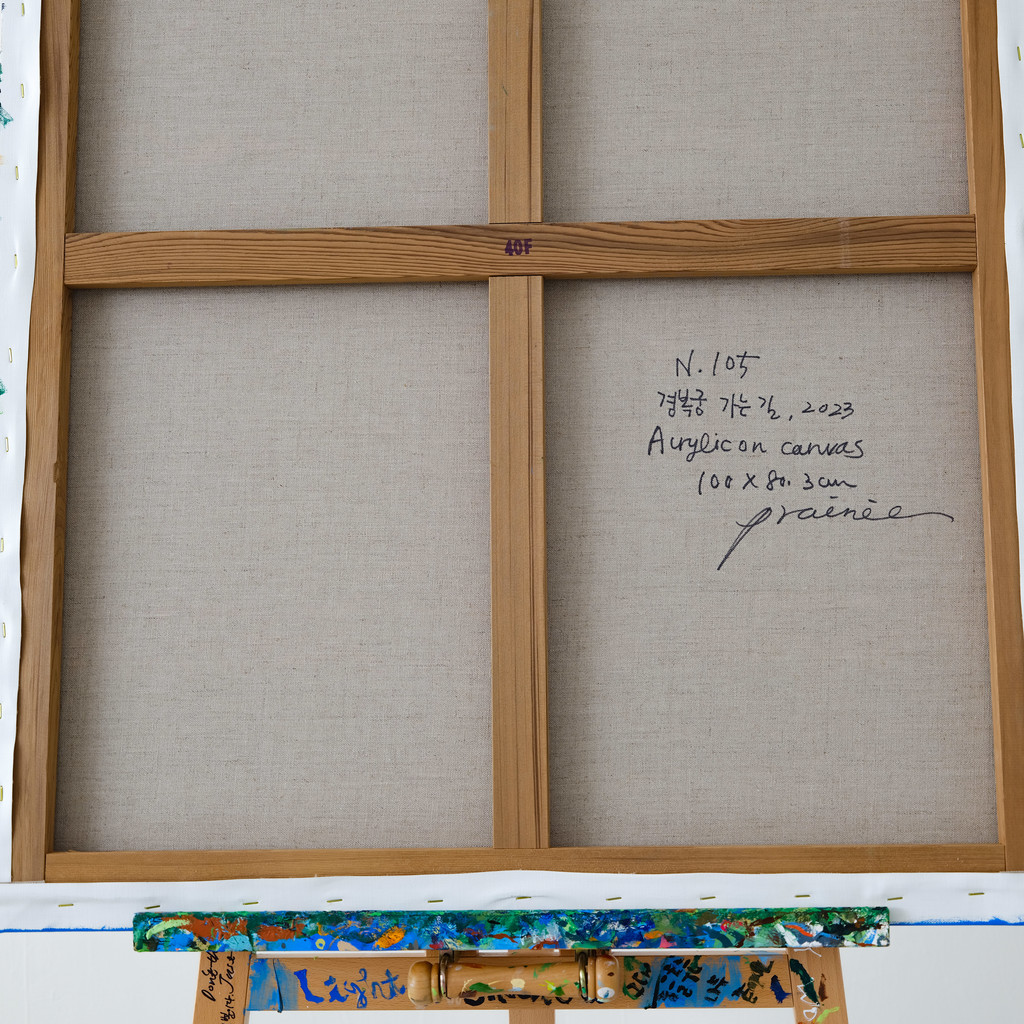 40F
N. 105
경복궁 가는 길, 2023
Acrylic on canvas
100 X 80.3 cm
prainèe